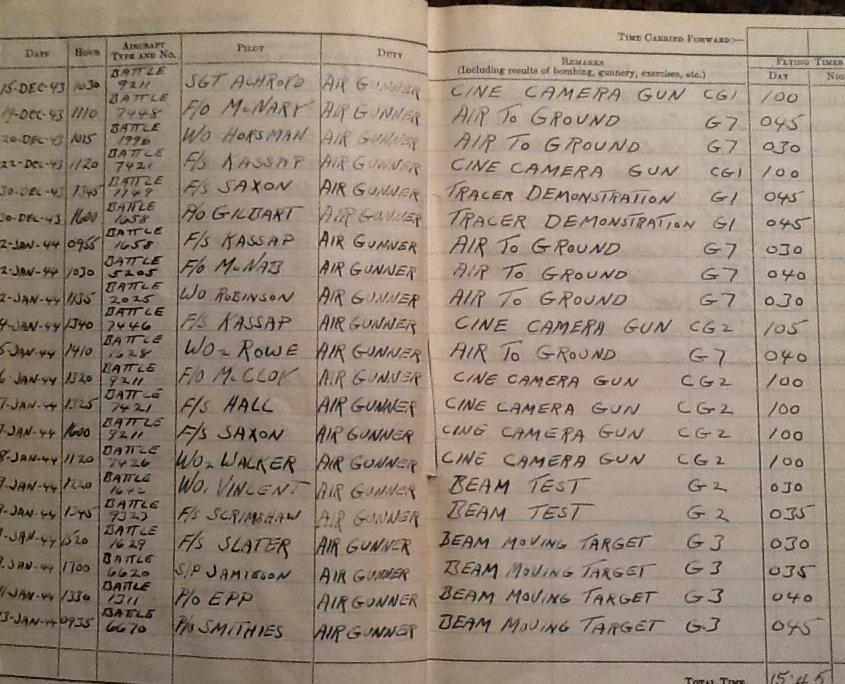 TIME CARRIED FORWARD:—
DATE HOUR AIRCRAFT TYPE AND NO. PILOT DUTY REMARKS (Including results of bombing, gunnery, exercises, etc.) FLYING TIMES DAY
15-DEC-43 1030 BATTLE 9211 SGT ACHROYD AIR GUNNER CINE CAMERA GUN CG1 100
19-DEC-43 1110 BATTLE 7448 F/O McNARY AIR GUNNER AIR TO GROUND G7 045
20-DEC-43 1015 BATTLE 1996 W/O HORSMAN AIR GUNNER AIR TO GROUND G7 030
22-DEC-43 1120 BATTLE 7421 F/S KASSAP AIR GUNNER CINE CAMERA GUN CG1 100
30-DEC-43 1345 BATTLE F/S SAXON AIR GUNNER TRACER DEMONSTRATION G1 045
30-DEC-43 1600 BATTLE 1658 P/O GILBART AIR GUNNER TRACER DEMONSTRATION G1 045
2-JAN-44 0955 BATTLE 1658 F/S KASSAP AIR GUNNER AIR TO GROUND G7 030
2-JAN-44 1030 BATTLE 5205 F/O McNAB AIR GUNNER AIR TO GROUND G7 040
2-JAN-44 1135 BATTLE 2025 WO ROBINSON AIR GUNNER AIR TO GROUND G7 030
4-JAN-44 1340 BATTLE 7446 F/S KASSAP AIR GUNNER CINE CAMERA GUN CG2 105
5-JAN-44 1410 BATTLE 1628 WO2 ROWE AIR GUNNER AIR TO GROUND G7 040
6-JAN-44 1320 BATTLE 9211 F/O AIR GUNNER CINE CAMERA GUN CG2 100
7-JAN-44 1325 BATTLE 7421 F/S HALL AIR GUNNER CINE CAMERA GUN CG2 100
7-JAN-44 1600 BATTLE 9211 F/S SAXON AIR GUNNER CINE CAMERA GUN CG2 100
8-JAN-44 1120 BATTLE 7426 WO2 WALKER AIR GUNNER CINE CAMERA GUN CG2 100
JAN-44 BATTLE 1642 WO1 VINCENT AIR GUNNER BEAM TEST G2 030
JAN-44 1345 BATTLE 9323 F/S SCRIMSHAW AIR GUNNER BEAM TEST G2 035
JAN-44 1520 BATTLE 1629 F/S SLATER AIR GUNNER BEAM MOVING TARGET G3 030
JAN-44 1700 BATTLE 6620 S/P JAMIESON AIR GUNNER BEAM MOVING TARGET G3 035
JAN-44 1330 BATTLE 1311 P/O EPP AIR GUNNER BEAM MOVING TARGET G3 040
3-JAN-44 0935 BATTLE 6670 P/O SMITHIES AIR GUNNER BEAM MOVING TARGET G3 045
TOTAL TIME 15:45